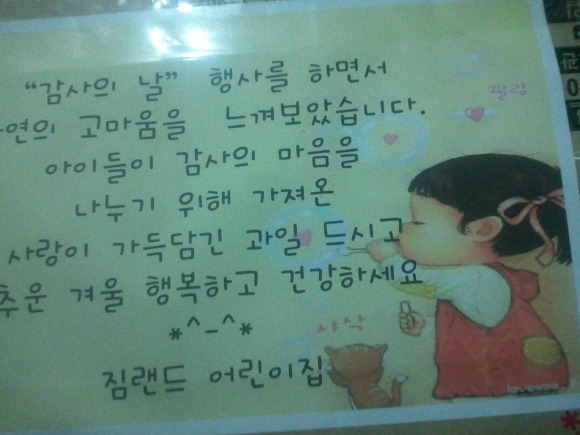 “감사의 날” 행사를 하면서
고마움을 느껴보았습니다.
아이들이 감사의 마음을
나누기 위해 가져온
사랑이 가득담긴 과일 드시고
추운 겨울 행복하고 건강하세요
*^-^*
짐랜드 어린이집
펄럭
샤삭